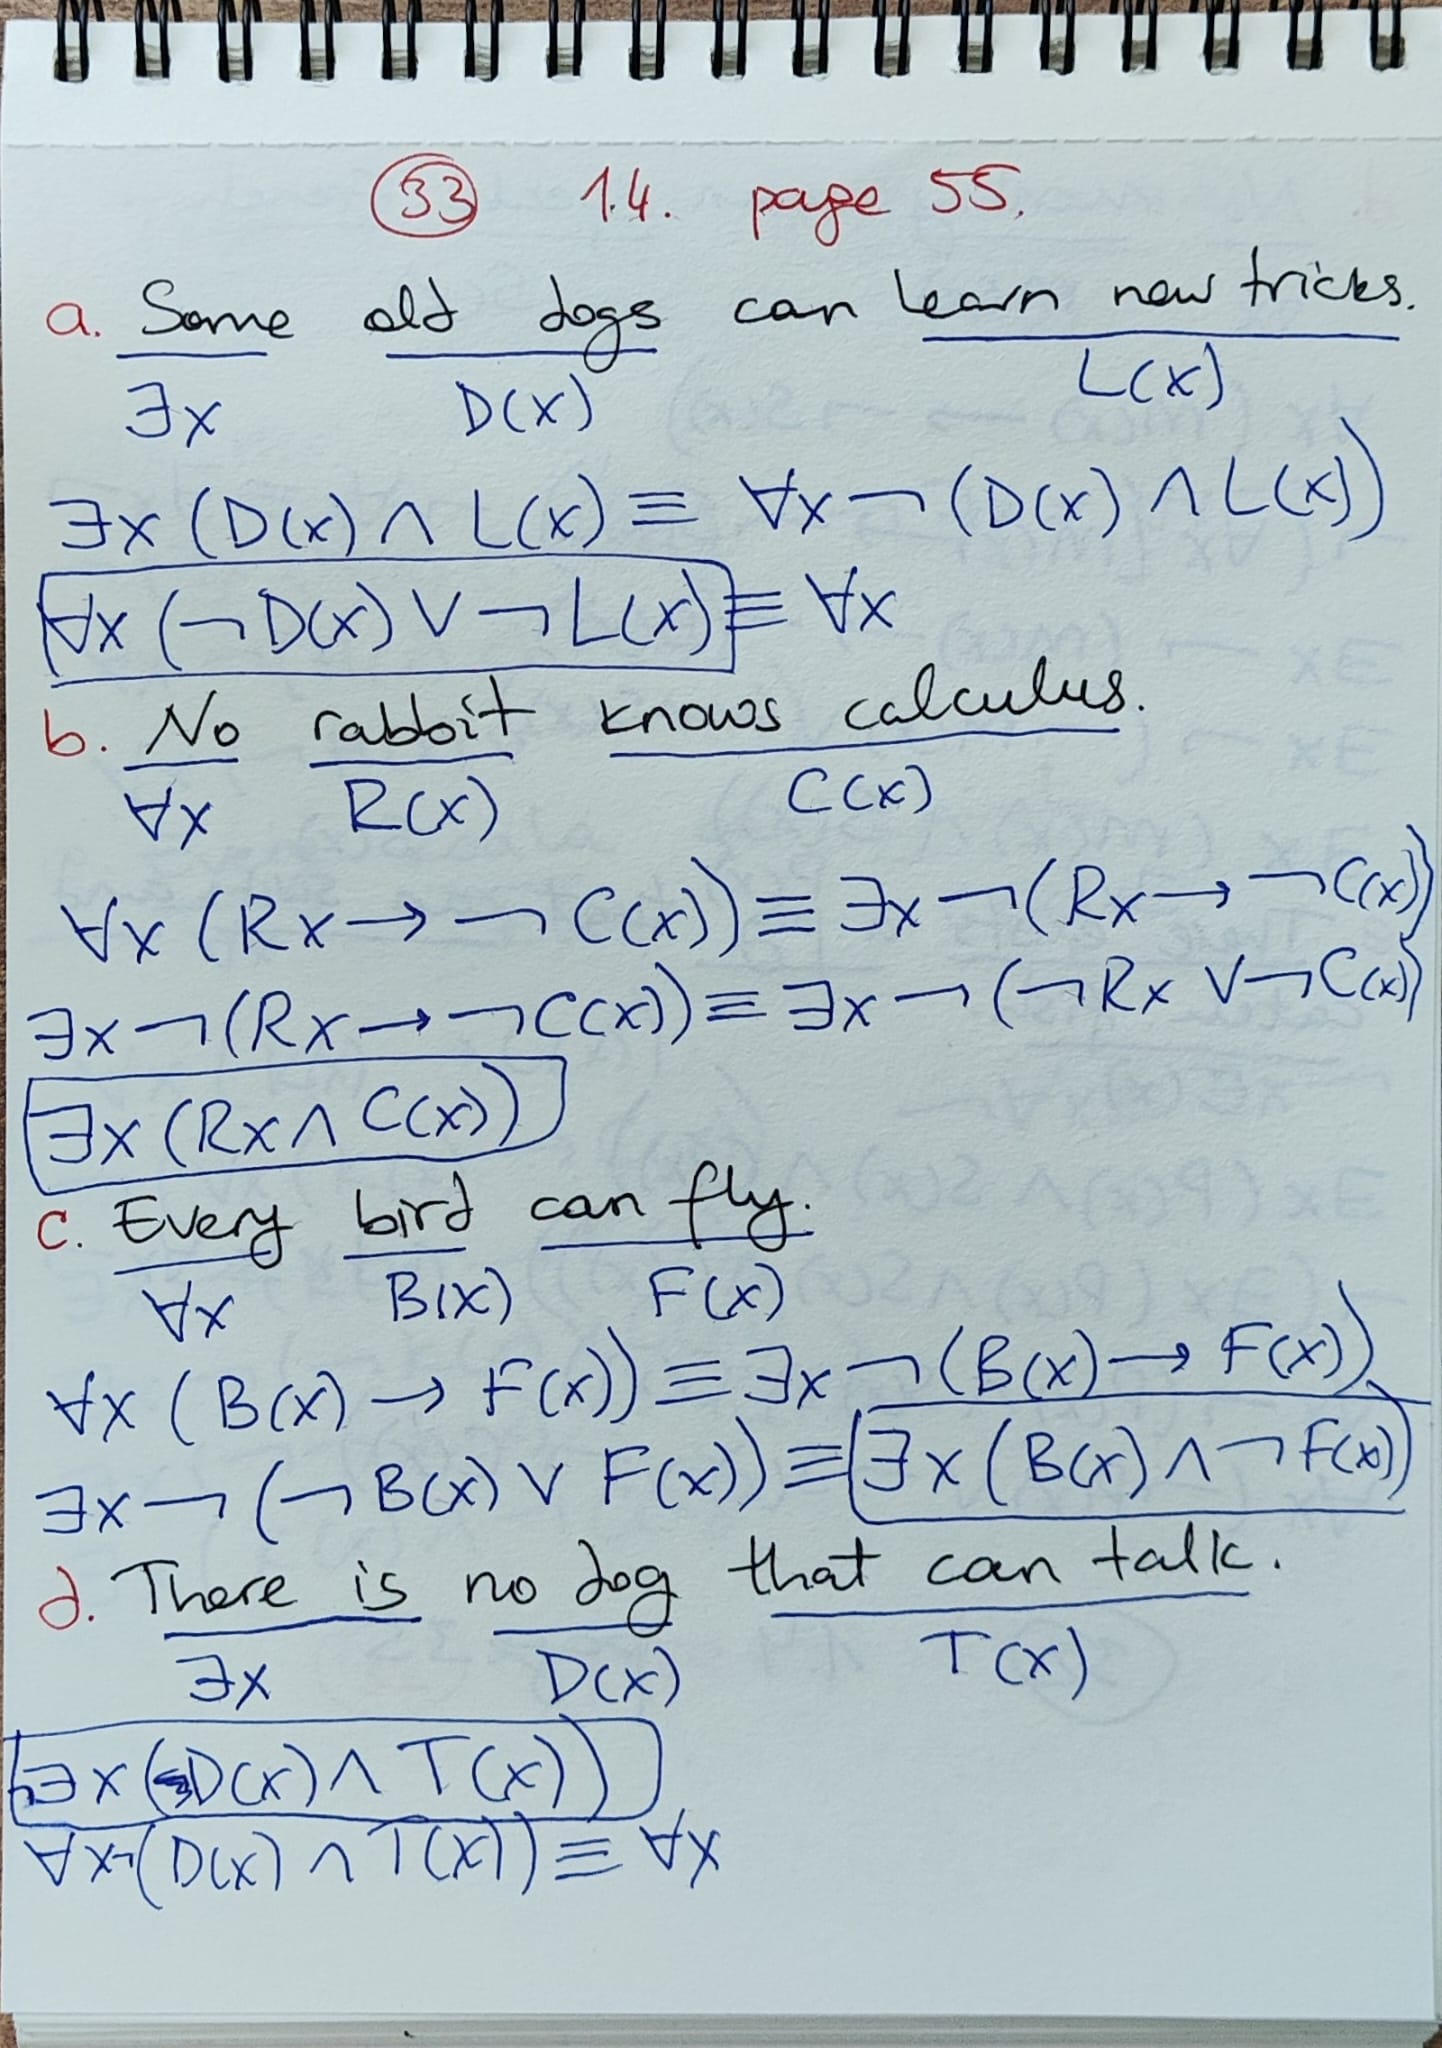 33 1.4. page 55.
a. Some old dogs can learn new tricks.
∃x D(x) L(x)
∃x (D(x) ∧ L(x) ≡ ∀x ¬ (D(x) ∧ L(x))
∀x (¬ D(x) ∨ ¬ L(x) ≡ ∀x
b. No rabbit knows calculus.
∀x R(x) C(x)
∀x (Rx → ¬ C(x)) ≡ ∃x ¬ (Rx → ¬C(x))
∃x ¬ (Rx → ¬C(x)) ≡ ∃x ¬ (¬Rx ∨ ¬C(x))
∃x (Rx ∧ C(x))
c. Every bird can fly.
∀x B(x) F(x)
∀x (B(x) → F(x)) ≡ ∃x ¬ (B(x) → F(x))
∃x ¬ (¬B(x) ∨ F(x)) ≡ ∃x (B(x) ∧ ¬F(x))
d. There is no dog that can talk.
∃x D(x) T(x)
∃x (D(x) ∧ T(x))
∀x¬(D(x) ∧ T(x)) ≡ ∀x